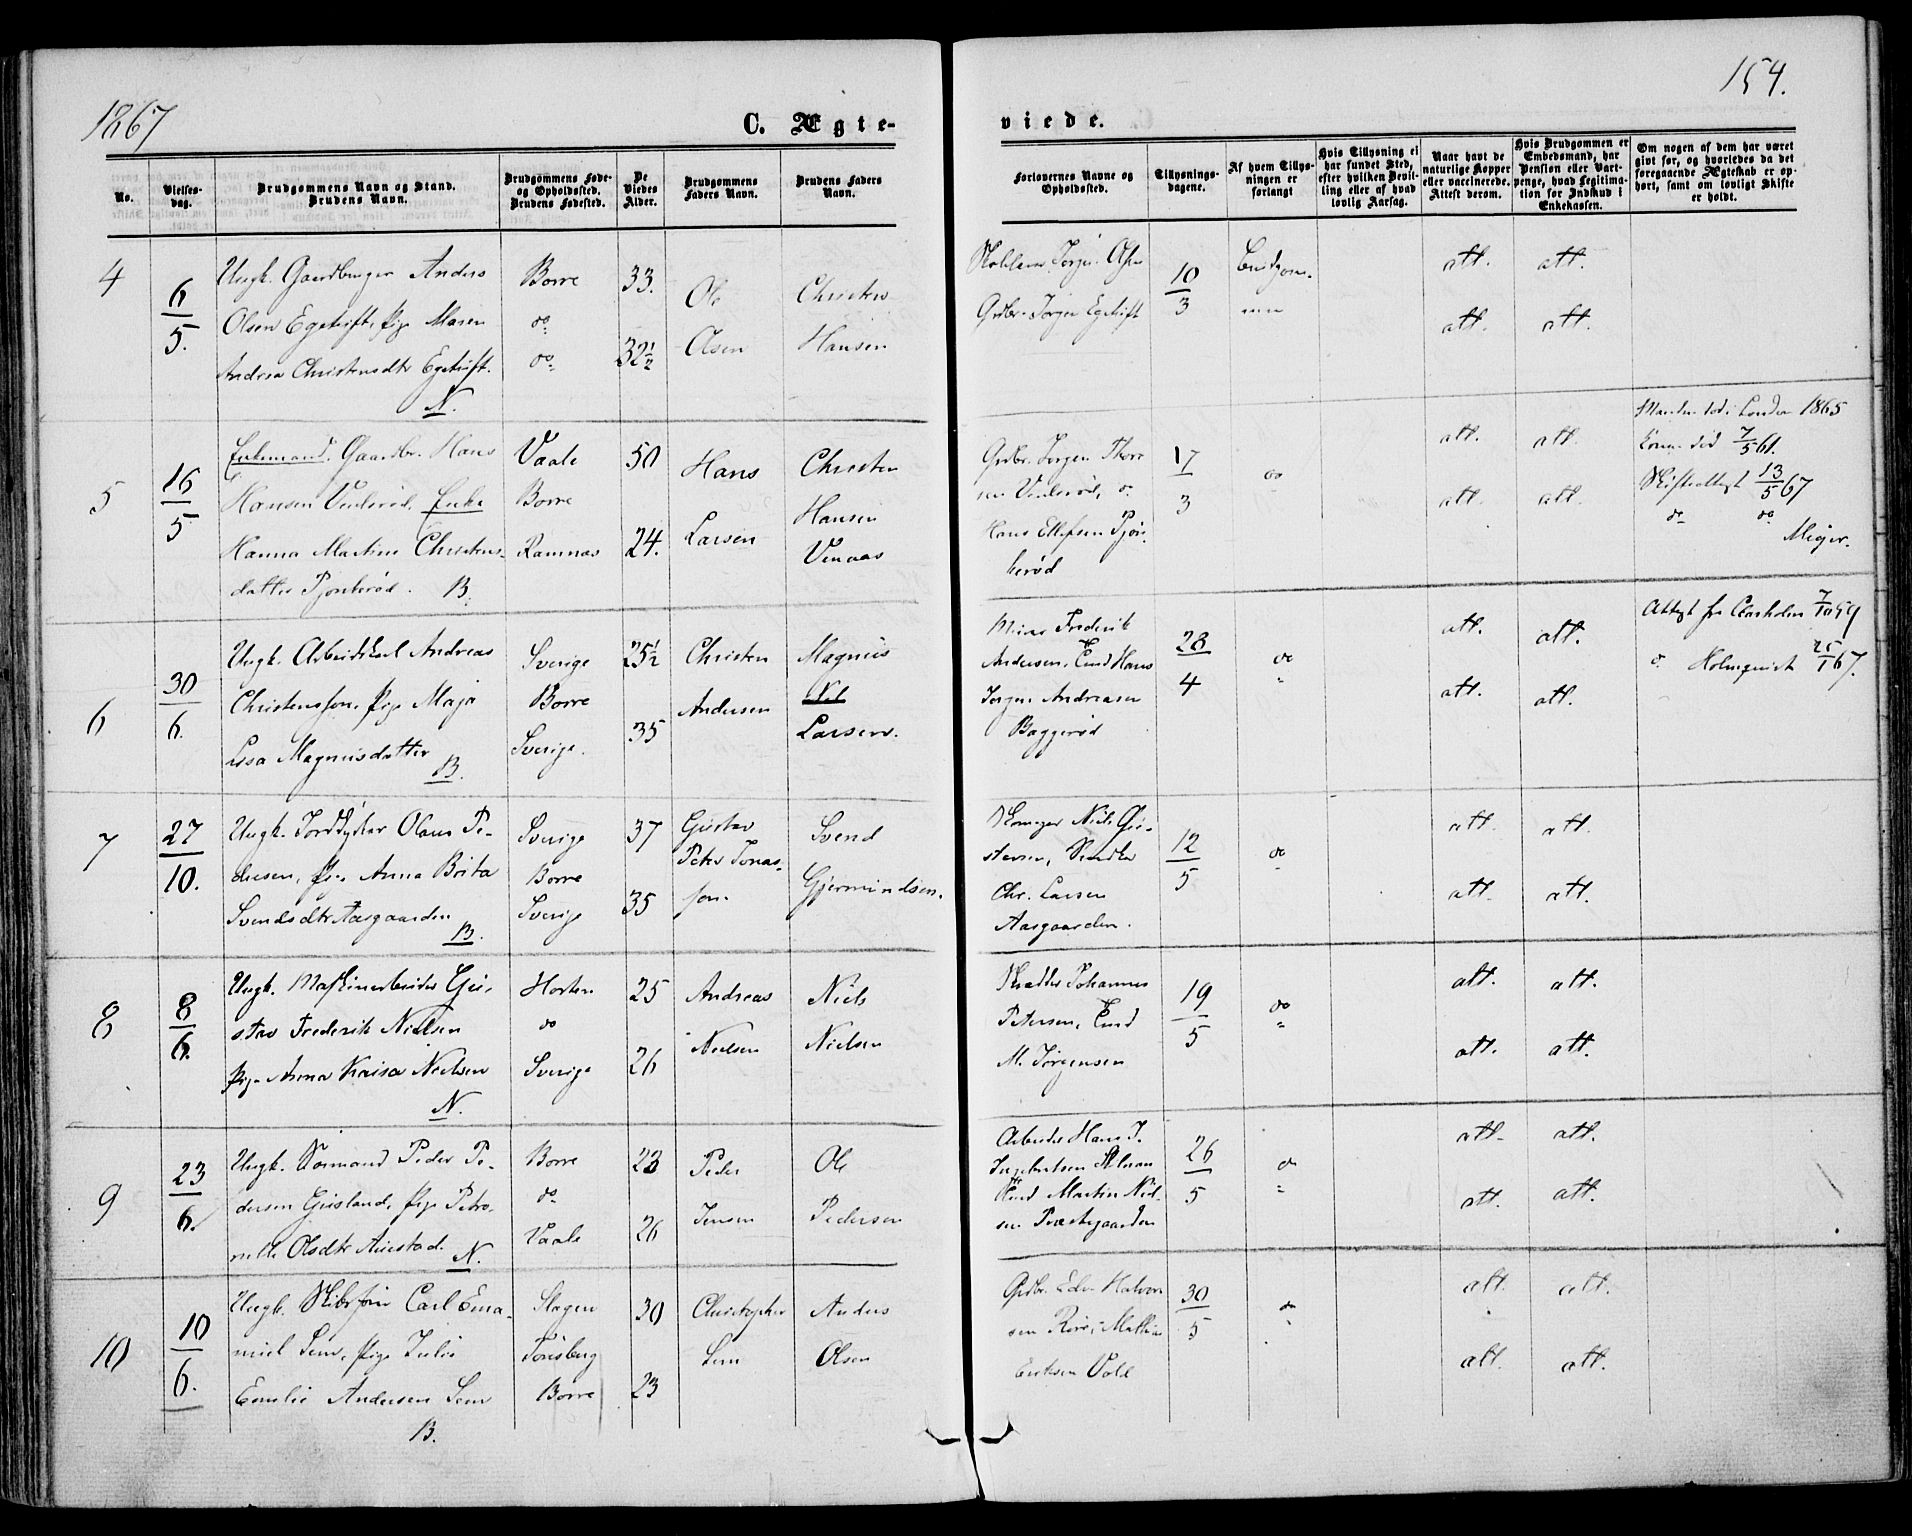 1867
154.
C. Ægte-
viede.
No.
Vielses-
dag.
Brudgommens Navn og Stand.
Brudens Navn.
Brudgommens Føde-
og Opholdssted.
Brudens Fødested.
De
Viedes
Alder.
Brudgommens
Faders Navn.
Brudens Faders
Navn.
Forlovernes Navne og
Opholdssted.
Tillysnings-
dagene.
Af hvem Tillys-
ningen er
forlangt
Hvis Tillysning ei
har fundet Sted,
efter hvilken Bevil-
ling eller af hvad
lovlig Aarsag.
Naar havt de
naturlige Kopper
eller vaccinerede.
Attest derom.
Hvis Brudgommen er
Embedsmand, har
Pension eller Vart-
penge, hvad Legitima-
tion for Indskud i
Enkekassen.
Om nogen af dem har været
givt før, og hvorledes da det
foregaaende Ægteskab er op-
hørt, samt om lovligt Skifte
er holdt.
4
6/5.
Ungk. Gaardbruger Anders
Olsen Egetrift, Pige Maren
Andrea Christensdtr Egetrift.
N.
Borre
do
do
33.
32½
Ole
Olsen
Christen
Hansen
Jørgen Olsen
Grdbr. Jørgen Egetrift
10/3
Brudgom-
men
att. att.
att. att.
5
16/5
Enkemand. Gaardbr. Hans
Hansen Venderød, Enke
Hanna Martine Christens-
datter Pjonkerød. B.
Vaale
Borre
Ramnæs
50
24.
Hans
Larsen
Christen
Hansen
Grdbr. Jørgen Thore
sen Venderød, do
Hans Ellefsen Pjon-
kerød
17/3
do
att. att.
att. att.
Manden død i London 1865
Konen død 7/5 61.
Skifteattest 13/5 67
do do
6
30/6.
Ungk. Arbeidskarl Andreas
Christensson, Pige Maja
Lisa Magnusdatter
B.
Sverige
Borre
Sverige.
25½
35
Christen
Andersen
Magnus
Larsen.
Frederik
Andersen, Hans
Jørgen Andreasen
Baggerød
28/4
do
att. att.
att. att.
Attest fra 7/10 59
do Holmqvist 25/1 67.
7
27/10.
Ungk. Jorddyrker Olaus Pe-
dersen, Pige Anna Brita
Svendsdtr Aasgaarden
B.
Sverige
Borre
Sverige
37
35
Gustav
Peter Jonas-
son.
Svend
Gjermundsen.
Skomager Niels Gu-
stavsen,
Chr. Larsen
Aasgaarden.
12/5
do
att. att.
att. att.
8
8/6.
Ungk. Maskinarbeider Gu-
stav Frederik Nielsen
Pige Anna Kaisa Nielsen
N.
Horten
do
Sverige
25
26
Andreas
Nielsen
Niels
Nielsen
Skrædder Johannes
Petersen,
M. Jørgensen
19/5
do
att. att.
att. att.
9
23/6.
Ungk. Sømand Peder Pe-
dersen Gusland, Pige Petro-
nelle Olsdtr Auestad. N.
Borre
do
Vaale
23
26
Peder
Jensen
Ole
Pedersen
Arbeider Hans J.
Ingebretsen
Martin Niel-
sen Præstegaarden
26/5
do
att. att.
att. att.
10
10/6.
Ungk. Skibsfører Carl Ema-
nuel Sem, Pige Julie
Emilie Andersen Sem
B.
Slagen
Tønsberg
Borre
30
23
Christopher
Sem
Anders
Olsen
Grdbr. Edv. Halvor-
sen Røre, Mathias
Eriksen Vold
30/5
do
att. att.
att. att.